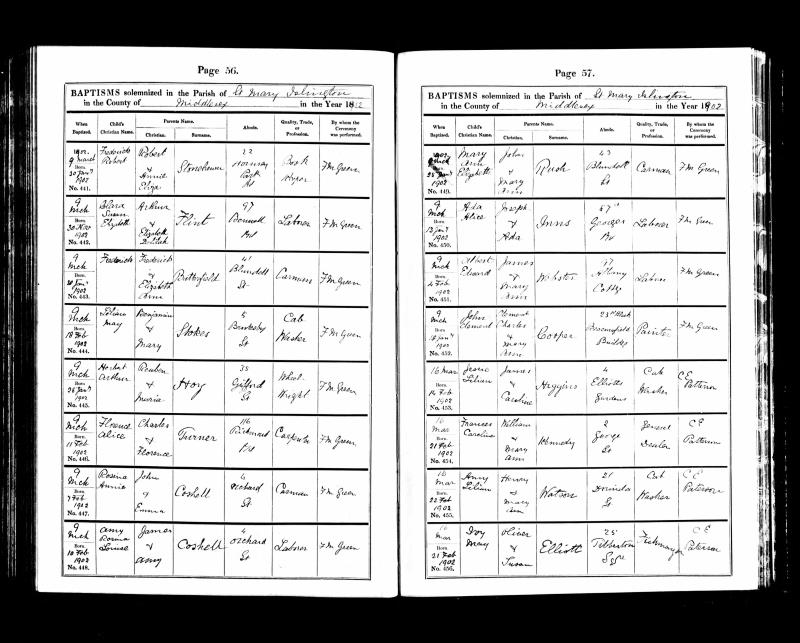 Page 56.
BAPTISMS solemnized in the Parish of St Mary Islington
in the County of Middlesex in the Year 18
When Baptized. Child's Christian Name. Parents Name. Christian. Surname. Abode. Quality, Trade, or Profession. By whom the Ceremony was performed.
1902. 9 March Born 30 Jany 1902 No. 441. Frederick Robert Robert & Annie Eliza Stonehewer 22 Hornsey Park Rd Book F M Green
9 Mch Born 30 Nov 1902 No. 442. Clara Susan Elizabeth Arthur & Elizabeth Flint 97 Rd Laborer F M Green
9 Mch Born 1902 No. 443. Frederick Frederick & Elizabeth Ann Butterfield 41 Blundell St Carman F M Green
9 Mch Born 18 Feb 1902 No. 444. Lilian May Benjamin & Mary Stokes 5 St Cab Washer F M Green
9 Mch Born 28 Jany 1902 No. 445. Herbert Arthur Reuben & Maria Hoy 35 Gifford St Wheel Wright F M Green
9 Mch Born 11 Feb 1902 No. 446. Florence Alice Charles & Florence Turner 116 Carpenter F M Green
9 Mch Born 7 Feb 1902 No. 447. Rosina Annie John & Emma Coshell 4 Orchard St Carman F M Green
9 Mch Born 10 Feb 1902 No. 448. Amy Rosina Louise James & Amy Coshell 4 Orchard St Laborer F M Green
Page 57.
BAPTISMS solemnized in the Parish of St Mary Islington
in the County of Middlesex in the Year 1902
When Baptized. Child's Christian Name. Parents Name. Christian. Surname. Abode. Quality, Trade, or Profession. By whom the Ceremony was performed.
1902. 9 Mch Born 28 Jany 1902 No. 449. Mary Ann Elizabeth John & Mary Ann Rush 43 Blundell St Carman F M Green
9 Mch Born 13 Jany 1902 No. 450. Ada Alice Joseph & Ada Inns 57 George's Rd Laborer F M Green
9 Mch Born 4 Feb 1902 No. 451. Albert Edward James & Mary Ann Webster 17 Albany Cotts Laborer F M Green
9 Mch Born 18 Jany 1902 No. 452. John Clement Clement Charles & Mary Ann Cooper 23 Bloomfield Builds Painter F M Green
16 Mar Born 14 Feb 1902 No. 453. Jessie Lilian James & Caroline Higgins 4 Elliotts Gardens Cab Washer C E Paterson
16 Mar Born 21 Feb 1902 No. 454. Frances Caroline William & Mary Ann Kennedy 2 George St General Dealer C E Paterson
16 Mar Born 22 Feb 1902 No. 455. Lilian Henry & Mary Ann Watson 21 Dorinda St Cab Washer C E Paterson
16 Mar Born 21 Feb 1902 No. 456. Ivy May Oliver & Susan Elliott 25 Tibberton Sqre Fishmonger C E Paterson